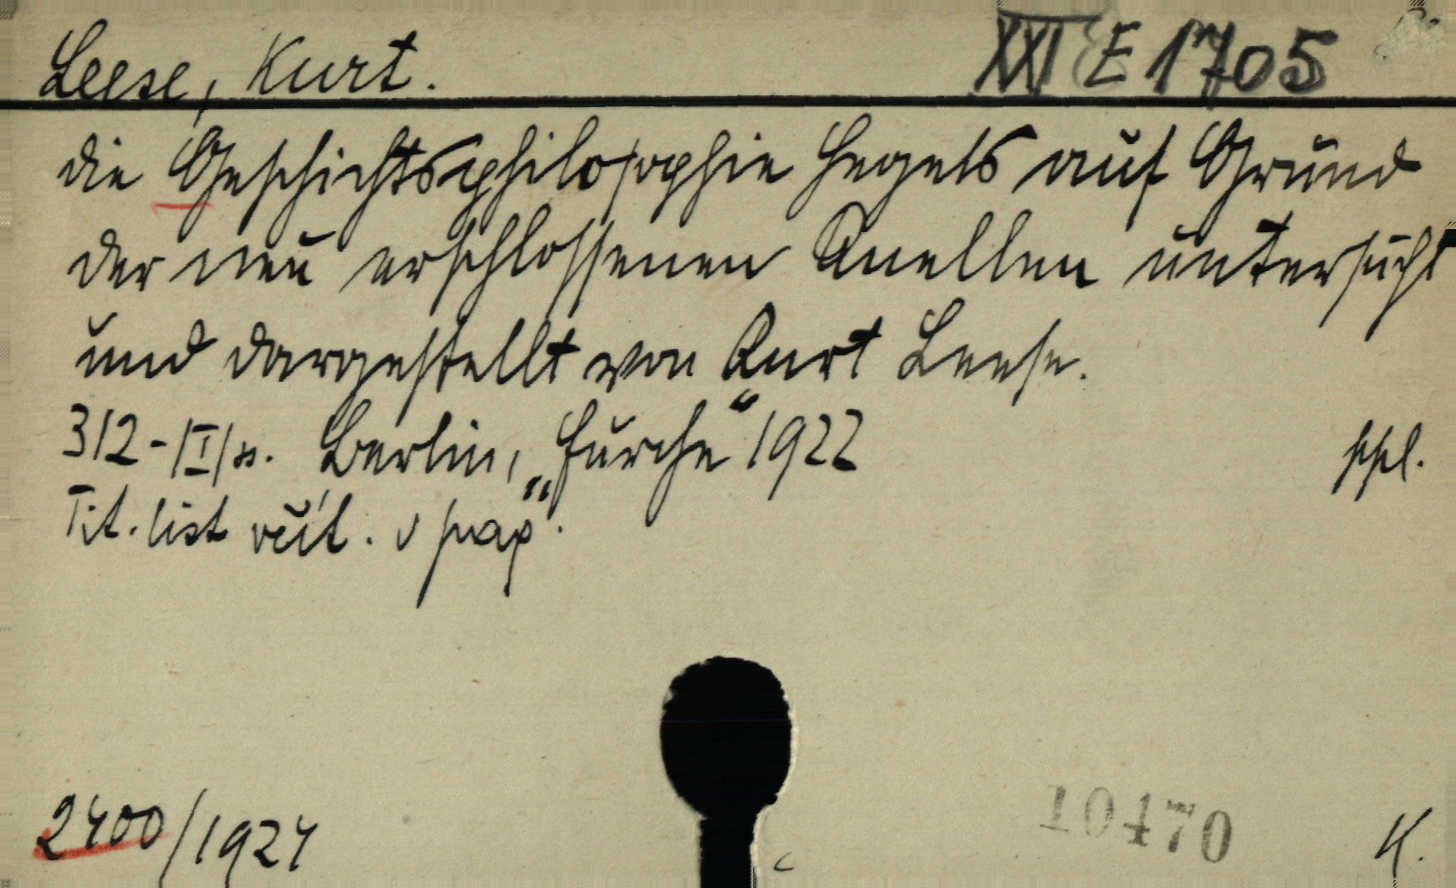 Leese, Kurt. XXI E 1705
die Geschichtsphilosophie Hegels auf Grund
der neu erschlossenen Quellen untersucht
und dargestellt von Kurt Leese.
312-/I/s. Berlin, „Furche“ 1922
Tit. list
2400/1924
10470
K.